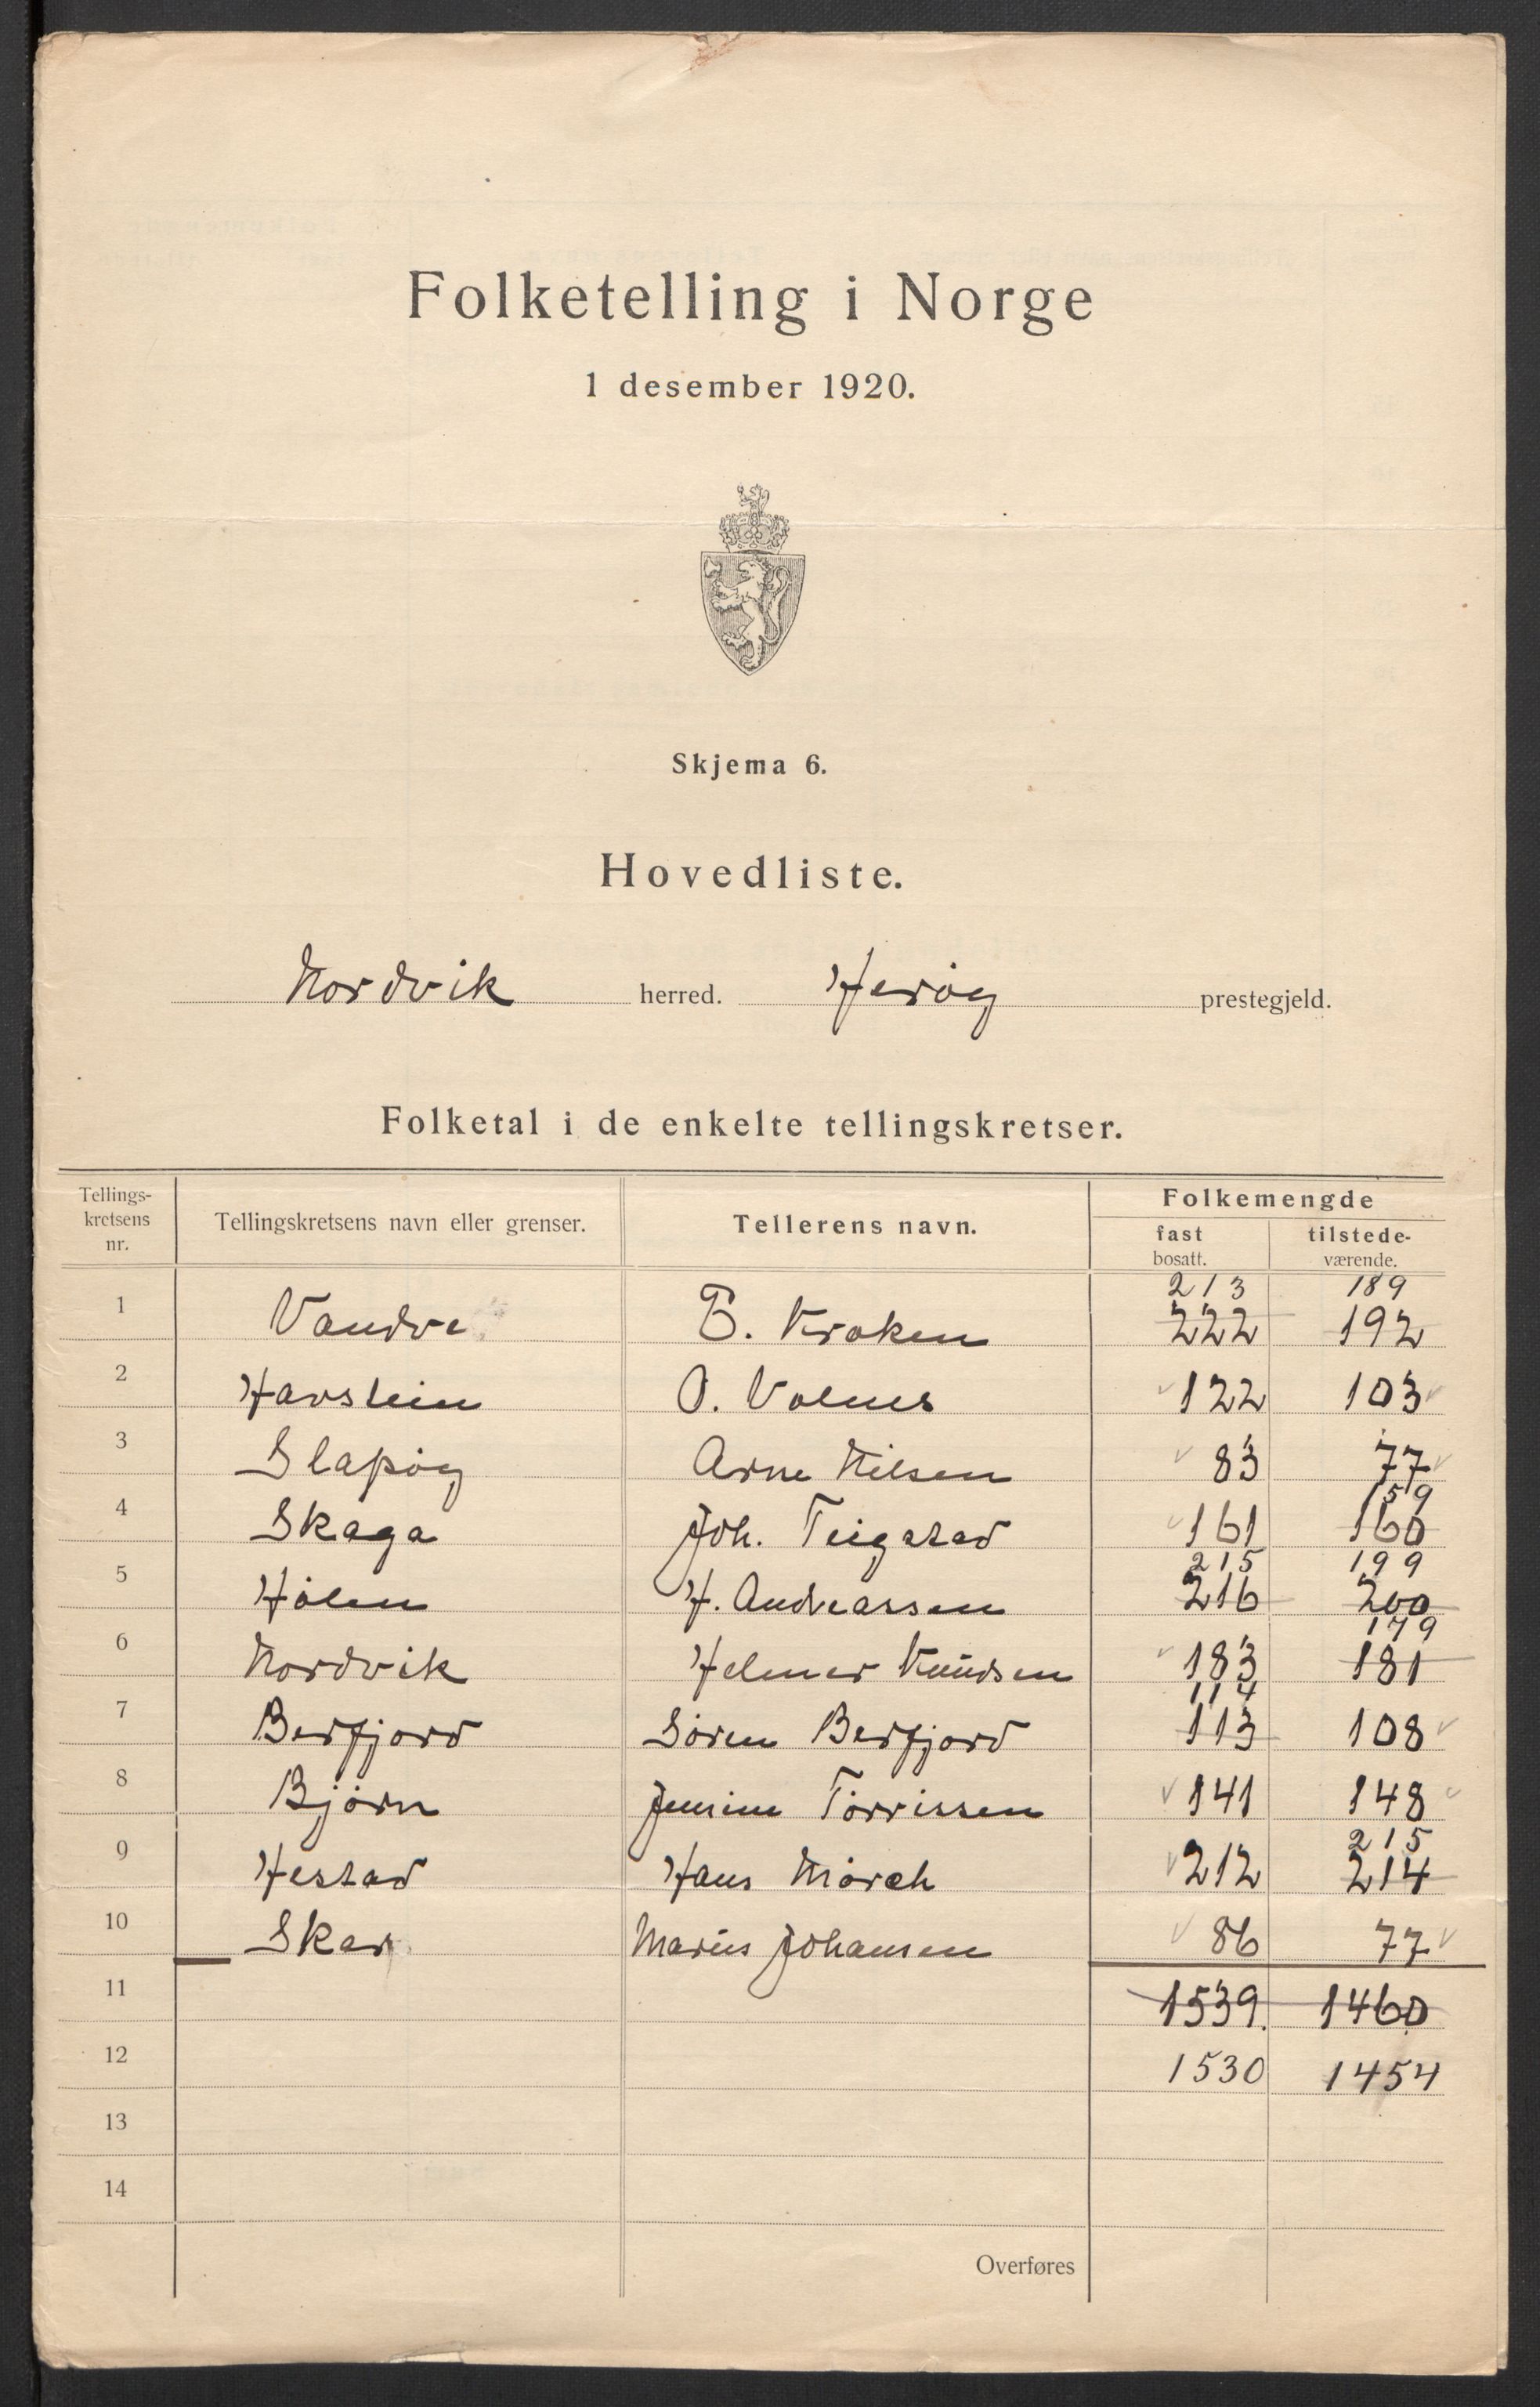 Folketelling i Norge
1 desember 1920.
Skjema 6.
Hovedliste.
Nordvik herred. Herøy prestegjeld.
Folketal i de enkelte tellingskretser.
Tellings-
kretsens
nr.
Tellingskretsens navn eller grenser.
Tellerens navn.
Folkemengde
fast
bosatt.
tilstede-
værende.
213 189
1 Vandve E. Kroken 222 192
2 Havstein O. Valnes 122 103
3 Slapøy Arne Nilsen 83 77
159
4 Skaga Joh. Teigstad 161 160
215 199
5 Hølen H. Andreassen 216 200
179
6 Nordvik Helmer Knudsen 183 181
114
7 Berfjord Søren Berfjord 113 108
8 Bjørn Jensine Tørrissen 141 148
215
9 Hestad Hans Mørch 212 214
10 Skar Marius Johansen 86 77
11 1539. 1460
12 1530 1454
13
14
Overføres